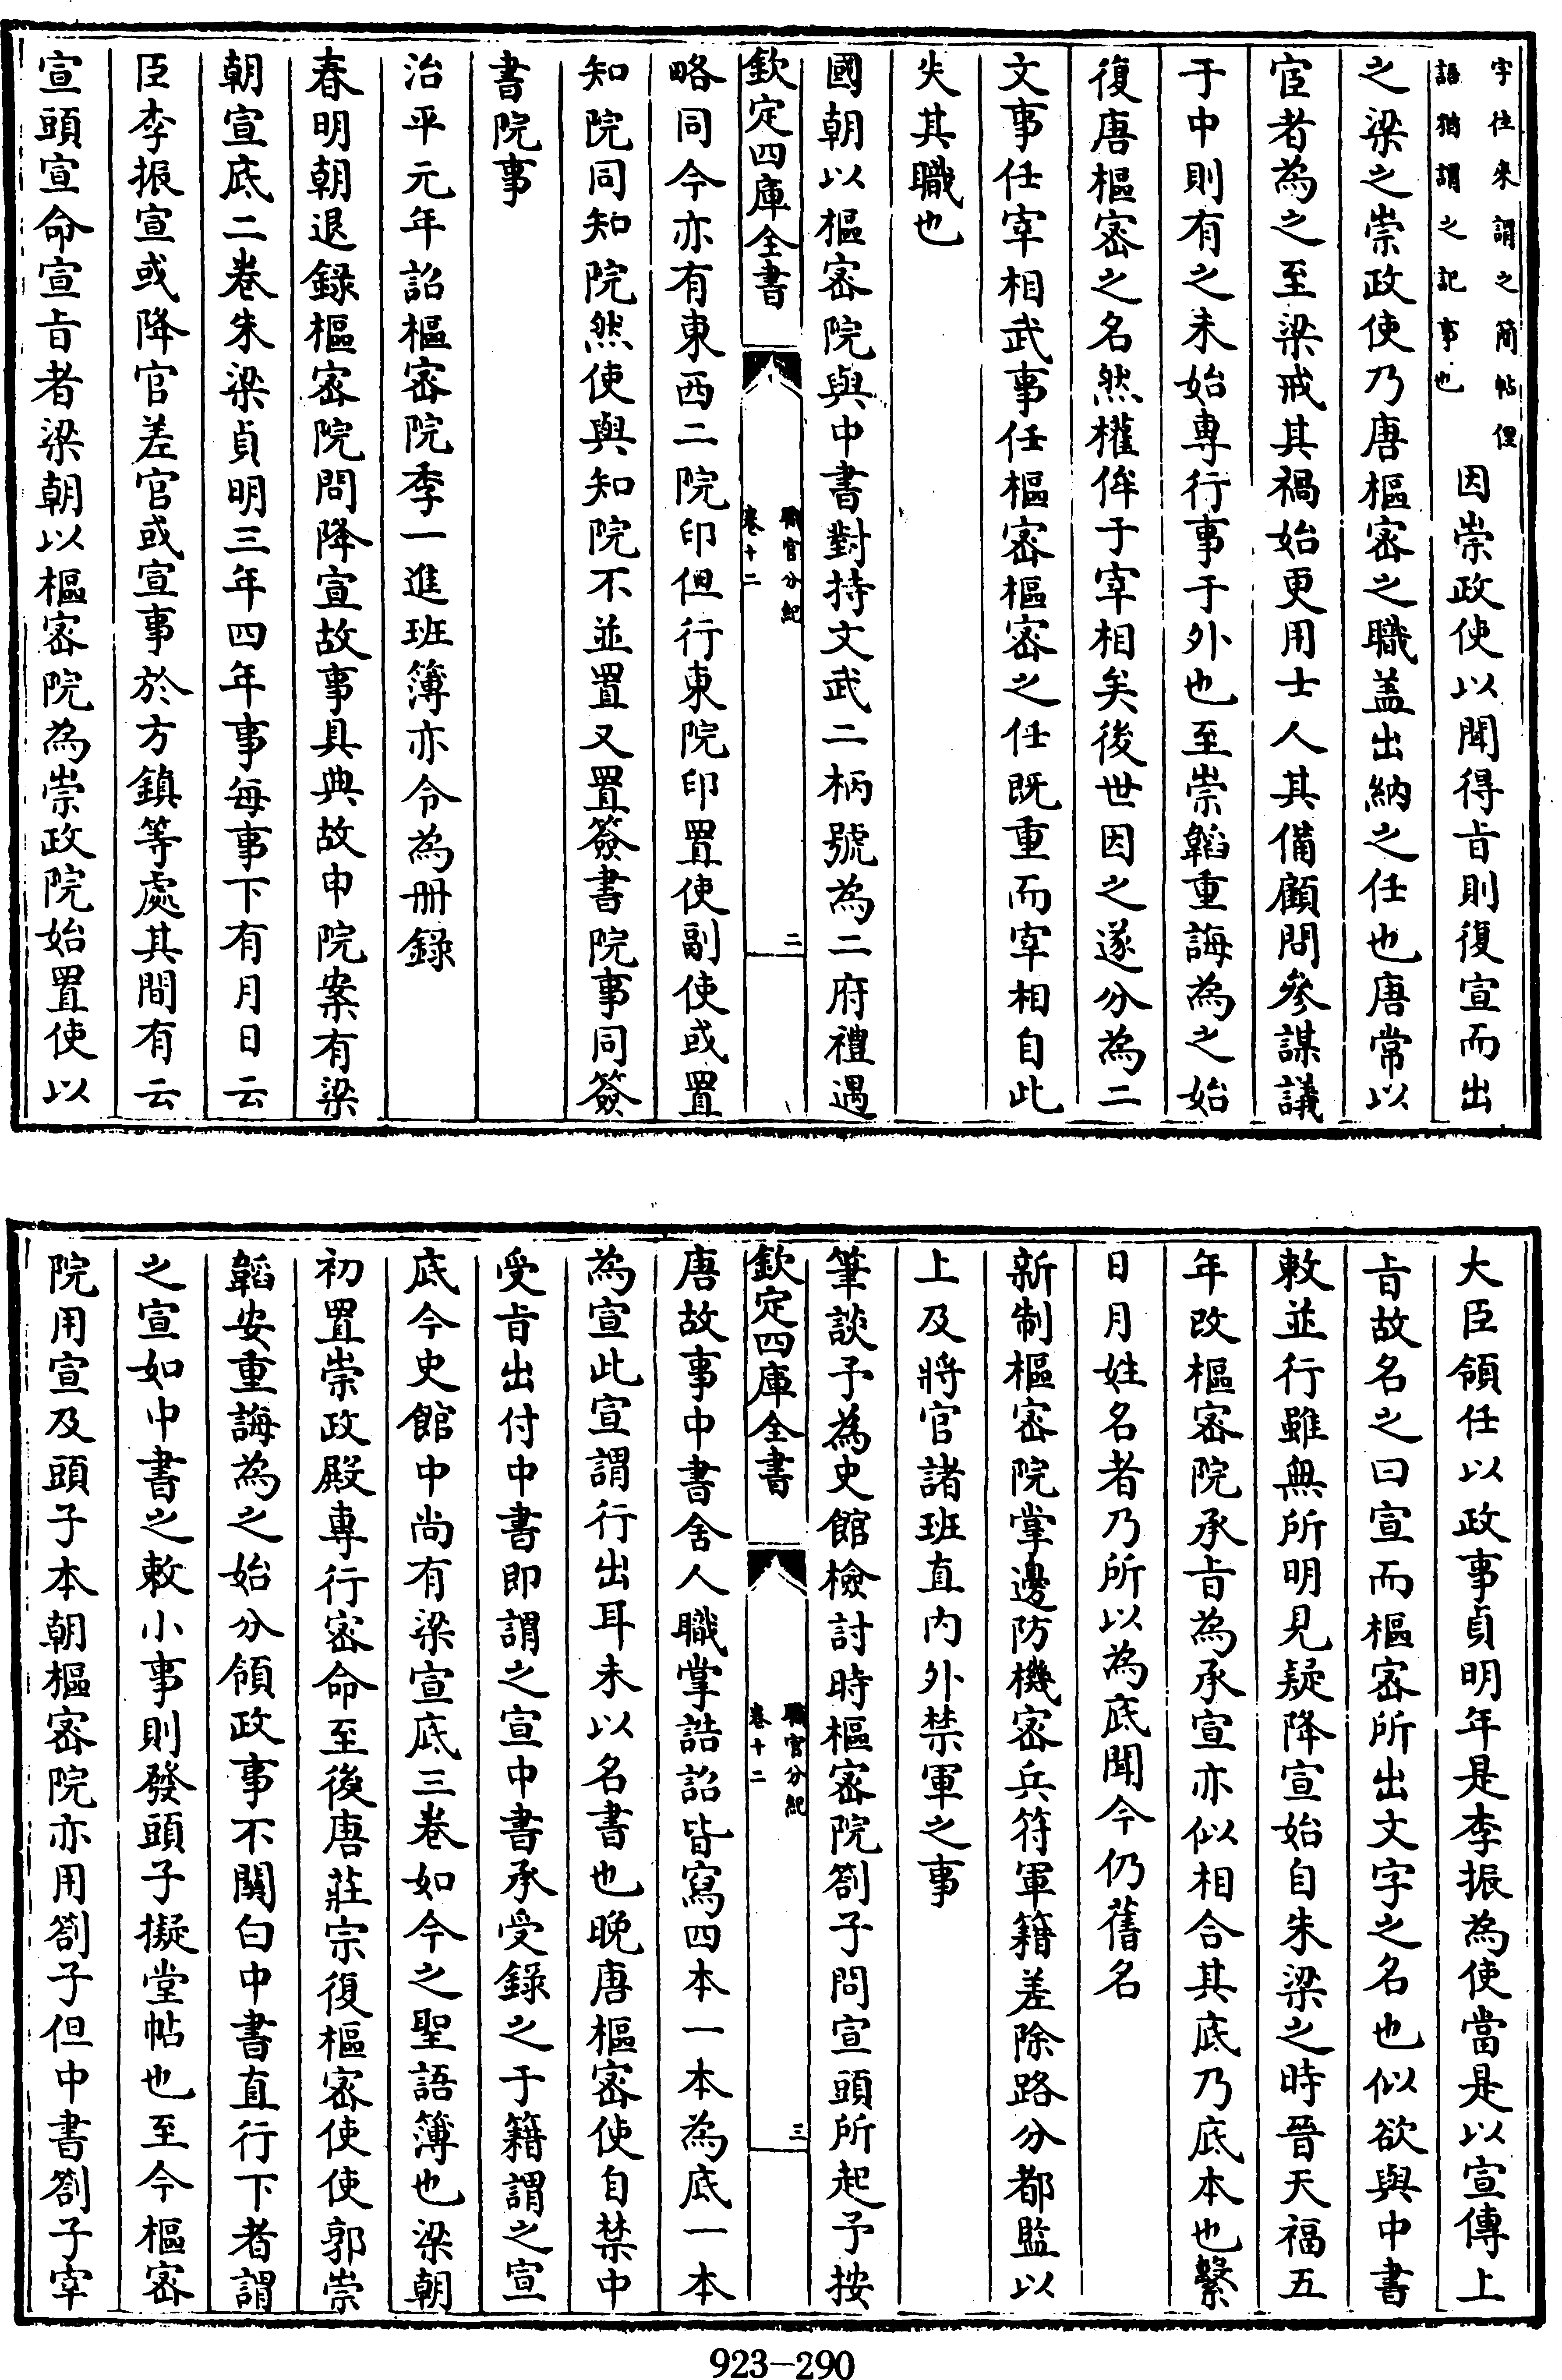 字往來謂之簡帖俚
語猶謂之記事也
因崇政使以聞得旨則復宣而出
之梁之崇政使乃唐樞密之職蓋出納之任也唐常以
宦者為之至梁戒其禍始更用士人其備顧問參謀議
于中則有之未始專行事于外也至崇韜重誨為之始
復唐樞密之名然權侔于宰相矣後世因之遂分為二
文事任宰相武事任樞密樞密之任既重而宰相自此
失其職也
國朝以樞密院與中書對持文武二柄號為二府禮遇
欽定四庫全書
職官分紀
卷十二
二
略同今亦有東西二院印但行東院印置使副使或置
知院同知院然使與知院不並置又置簽書院事同簽
書院事
治平元年詔樞密院季一進班簿亦令為冊錄
春明朝退録樞密院問降宣故事具典故申院案有梁
朝宣底二卷朱梁貞明三年四年事每事下有月日云
臣李振宣或降官差官或宣事於方鎮等處其間有云
宣頭宣命宣旨者梁朝以樞密院為崇政院始置使以
大臣領任以政事貞明年是李振為使當是以宣傳上
旨故名之曰宣而樞密所出文字之名也似欲與中書
敕並行雖無所明見疑降宣始自朱梁之時晉天福五
年改樞密院承旨為承宣亦似相合其底乃底本也繫
日月姓名者乃所以為底聞今仍舊名
新制樞密院掌邊防機密兵符軍籍差除路分都監以
上及將官諸班直内外禁軍之事
筆談予為史館檢討時樞密院劄子問宣頭所起予按
欽定四庫全書
職官分紀
卷十二
三
唐故事中書舍人職掌誥詔皆寫四本一本為底一本
為宣此宣謂行出耳未以名書也晚唐樞密使自禁中
受旨出付中書即謂之宣中書承受錄之于籍謂之宣
底今史館中尚有梁宣底三卷如今之聖語簿也梁朝
初置崇政殿專行密命至後唐莊宗復樞密使使郭崇
韜安重誨為之始分領政事不關白中書直行下者謂
之宣如中書之敕小事則發頭子擬堂帖也至今樞密
院用宣及頭子本朝樞密院亦用劄子但中書劄子宰
923-290